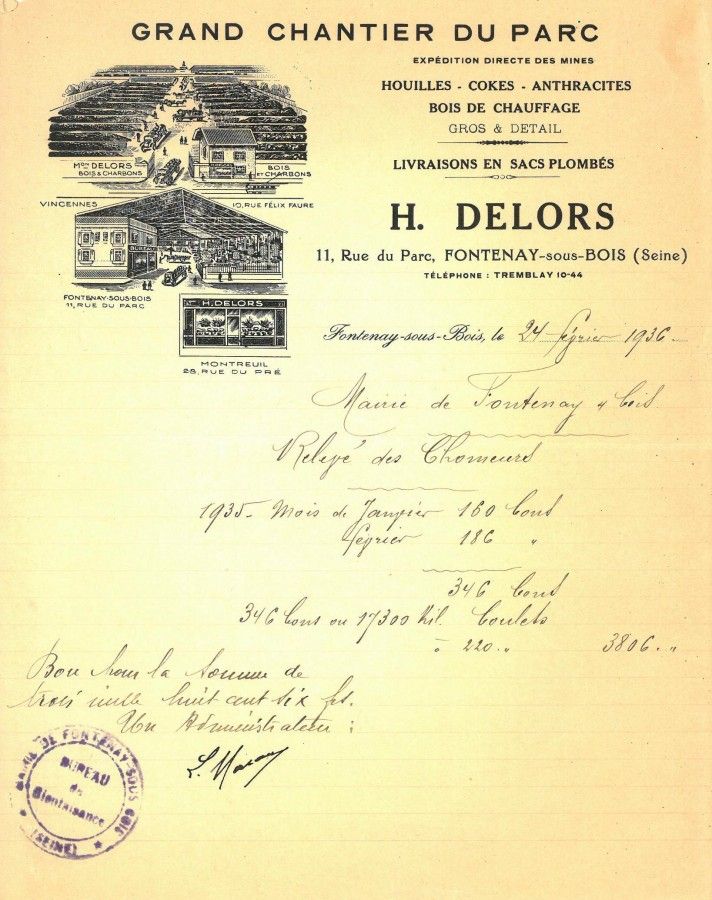 GRAND CHANTIER DU PARC
EXPÉDITION DIRECTE DES MINES
HOUILLES - COKES - ANTHRACITES
BOIS DE CHAUFFAGE
GROS & DETAIL
LIVRAISONS EN SACS PLOMBÉS
H. DELORS
11, Rue du Parc, FONTENAY-sous-BOIS (Seine)
TÉLÉPHONE : TREMBLAY 10-44
Mon DELORS
BOIS & CHARBONS
BOIS
ET CHARBONS
VINCENNES
10, RUE FÉLIX FAURE
BUREAU
FONTENAY-SOUS-BOIS
11, RUE DU PARC
H. DELORS
MONTREUIL
28, RUE DU PRÉ
Fontenay-sous-Bois, le 24 février 1936
Mairie de Fontenay s/ bois
Relevé des Chomeurs
1935 - Mois de Janvier 160 bons
février 186 "
346 bons
346 bons ou 17300 kil. boulets
à 220 " 3806 "
Bon pour la somme de
trois mille huit cent six frs.
Un Administrateur :
MAIRIE DE FONTENAY-SOUS-BOIS
BUREAU
de
Bienfaisance
(SEINE)